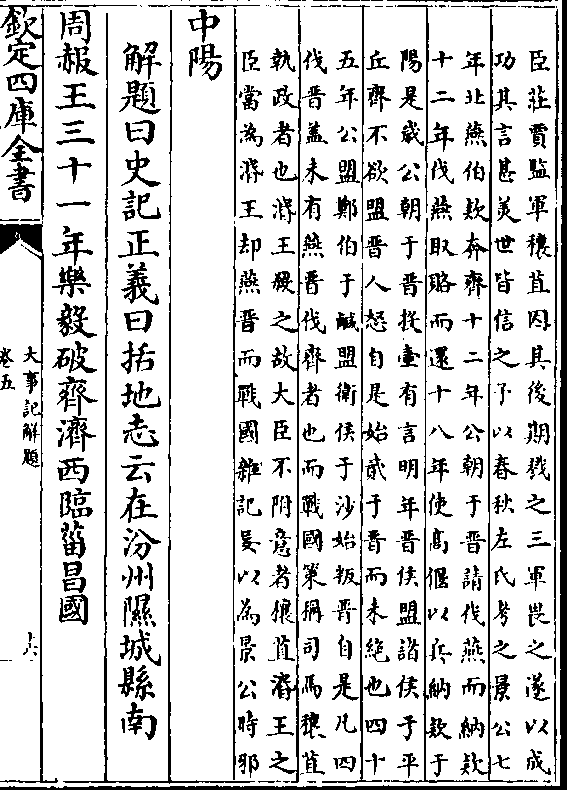 臣莊賈監軍穰苴因其後期戮之三軍畏之遂以成
功其言甚美世皆信之予以春秋左氏考之景公七
年北燕伯欵奔齊十二年公朝于晉請伐燕而納欵
十二年伐燕取賂而還十八年使髙偃以兵納欵于
陽是歲公朝于晉投壷有言明年晉侯盟諸侯于平
丘齊不欲盟晉人怒自是始貳于晉而未絶也四十
五年公盟鄭伯于鹹盟衛侯于沙始叛晉自是凡四
伐晉蓋未有燕晉伐齊者也而戰國策稱司馬穰苴
執政者也湣王殺之故大臣不附意者穰苴湣王之
臣當為湣王却燕晉而戰國雜記妄以為景公時耶
中陽
解題曰史記正義曰括地志云在汾州隰城縣南
周赧王三十一年樂毅破齊濟西臨菑昌國
欽定四庫全書
大事記解題
卷五
十六